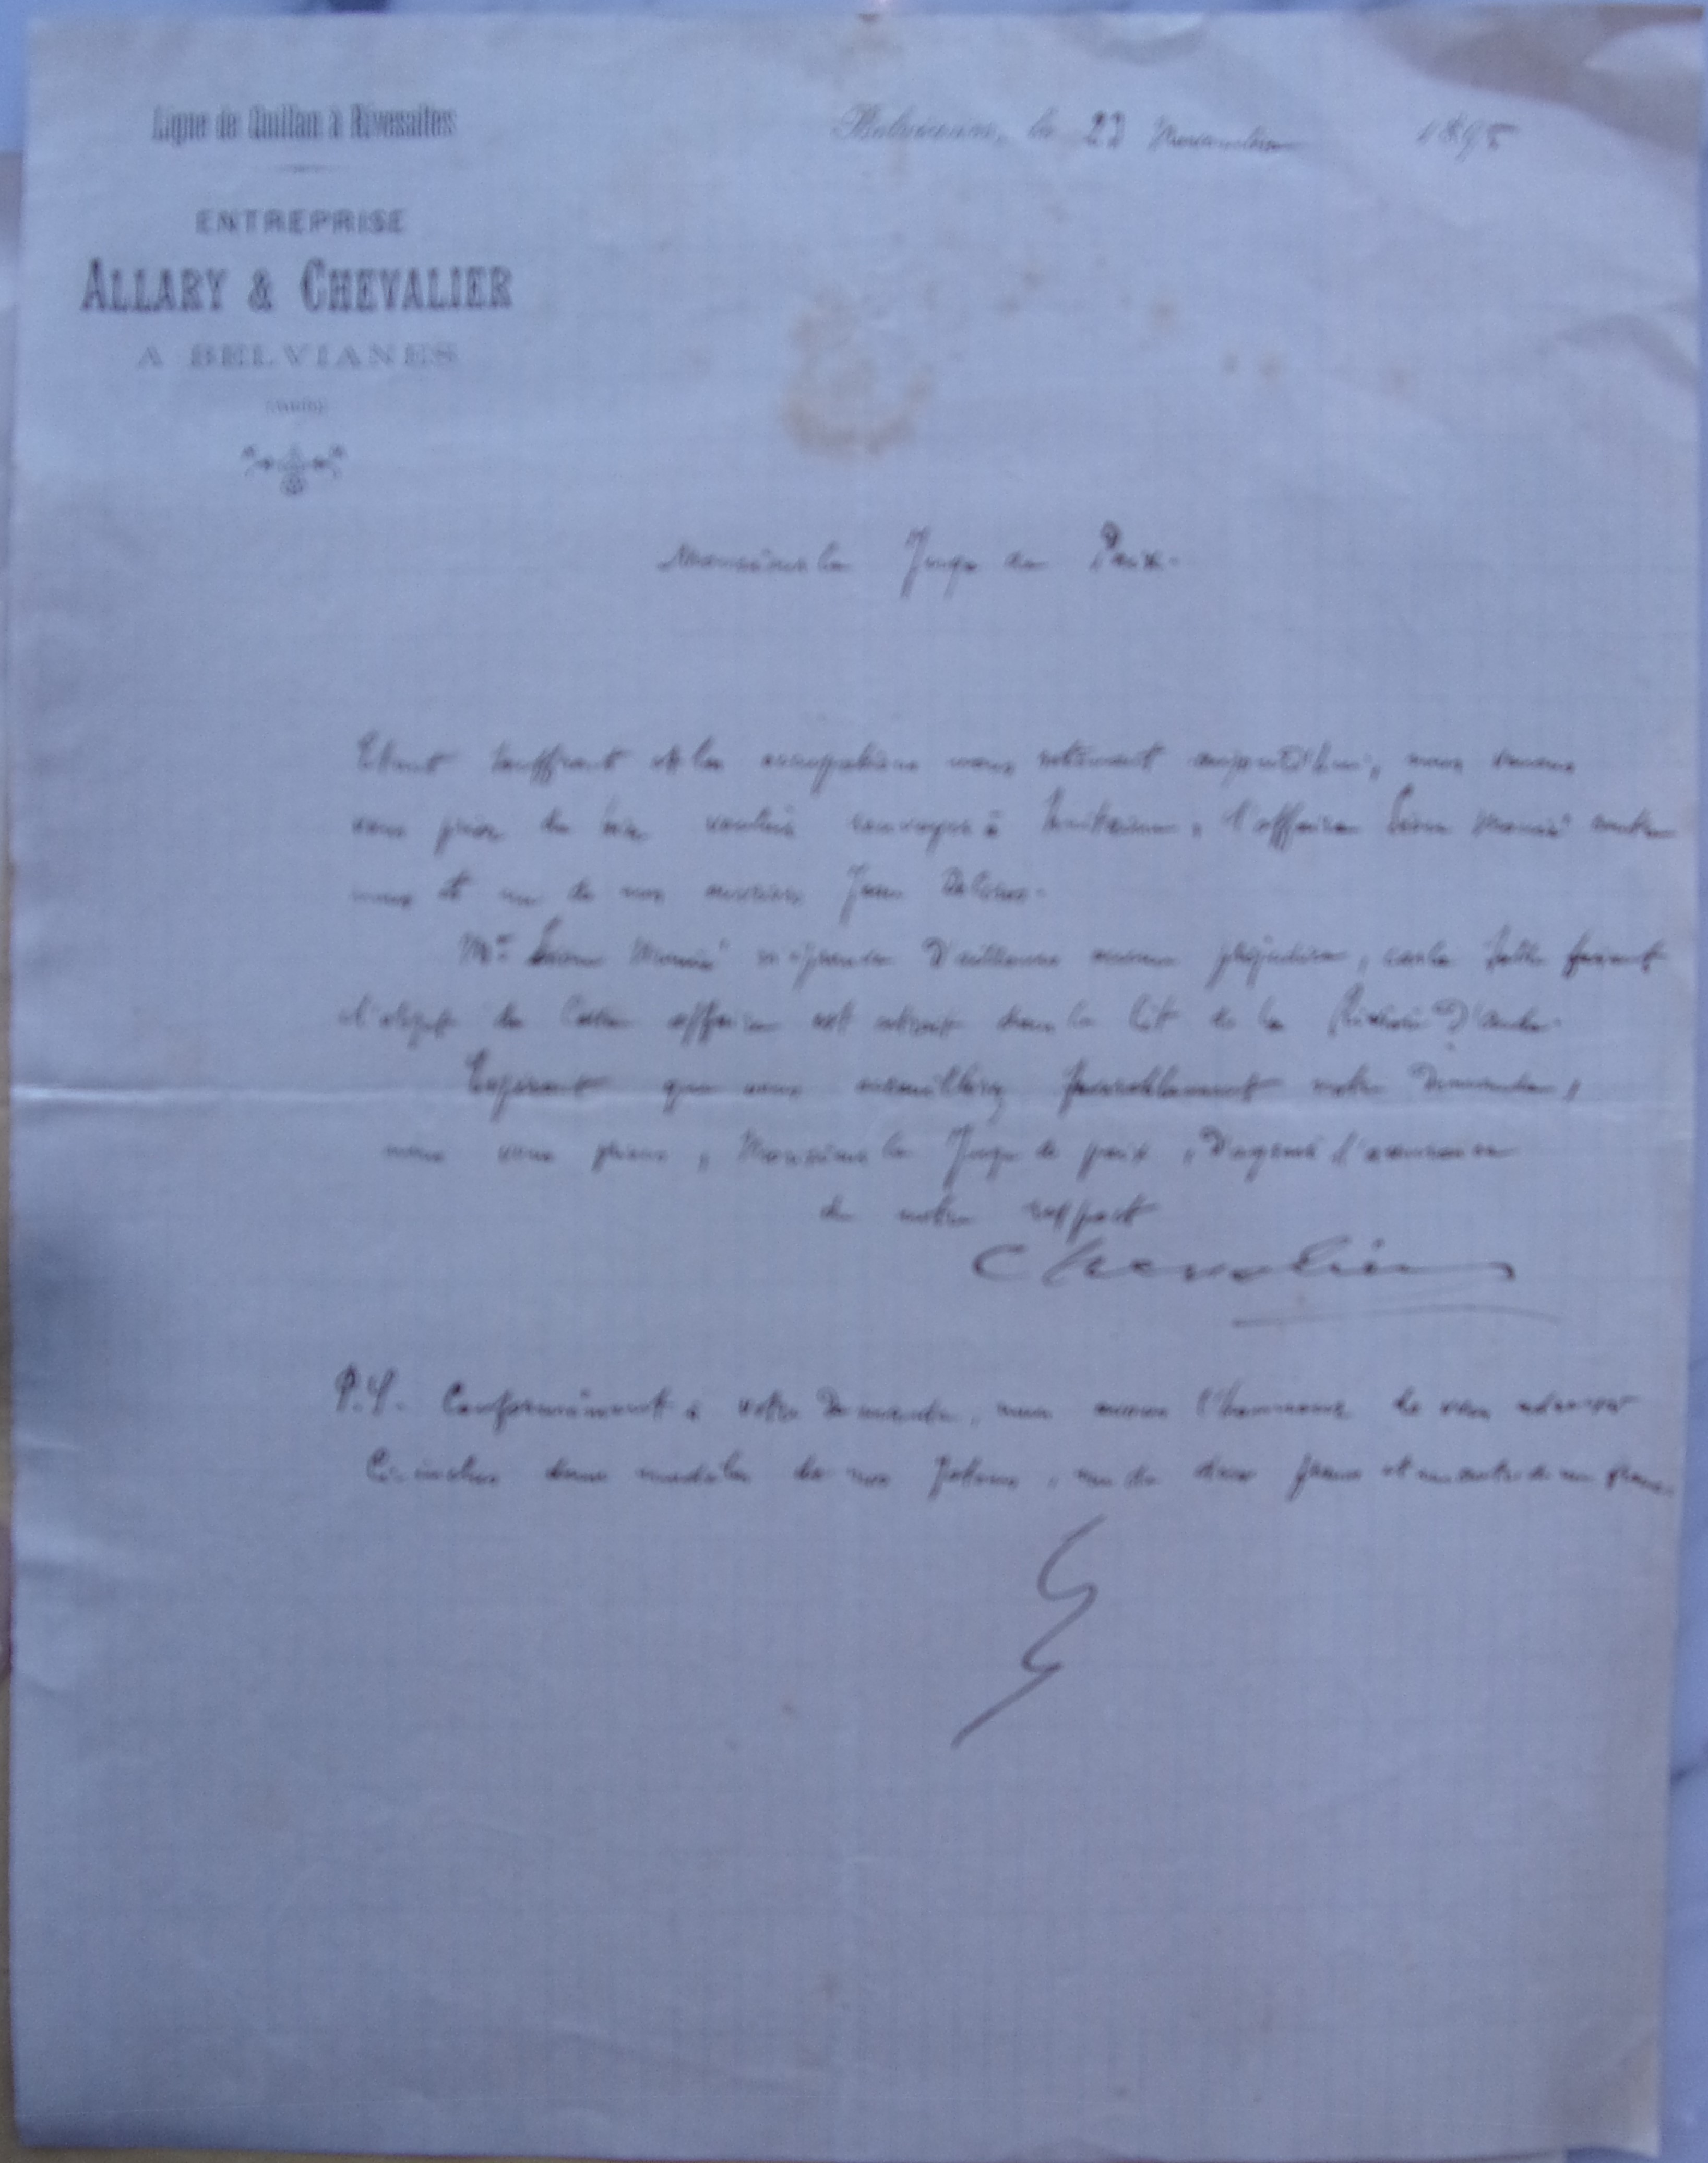 Ligne de Quillan à Rivesaltes
Belvianes, le 23 Novembre 1895
ENTREPRISE
ALLARY & CHEVALIER
A BELVIANES
(Aude)
Monsieur le Juge de Paix.
Etant souffrant et les occupations nous retenant aujourd'hui, nous venons
vous prier de bien vouloir renvoyer à huitaine, l'affaire contre
nous et un de nos ouvriers Jean
Mr n'éprouve d'ailleurs aucun préjudice, car la faisant
l'objet de cette affaire est dans le lit de la Rivière d'Aude.
Espérant que vous accueillerez favorablement notre demande,
nous vous prions, Monsieur le Juge de paix, d'agréer l'assurance
de notre respect
Chevalier
P.S. Conformément à votre demande, nous avons l'honneur de vous adresser
Ci-inclus deux modèles de nos jetons, un de deux francs et un autre de un franc.